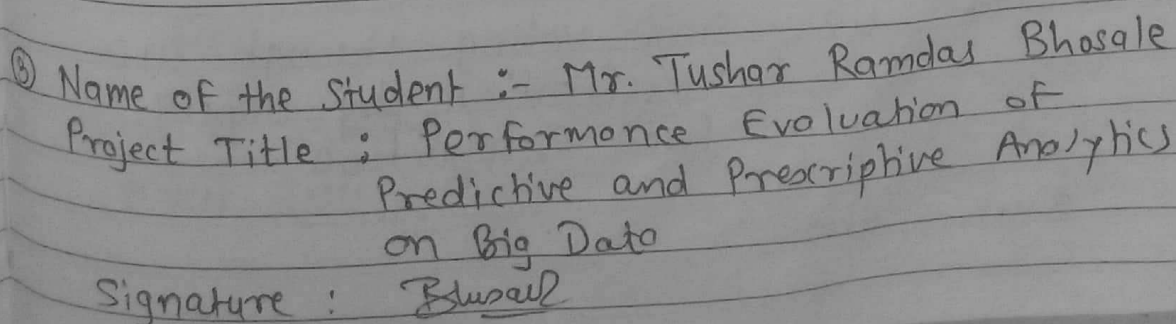 ③ Name of the Student :- Mr. Tushar Ramdas Bhosale
Project Title : Performance Evaluation of
Predictive and Prescriptive Analytics
on Big Data
Signature :